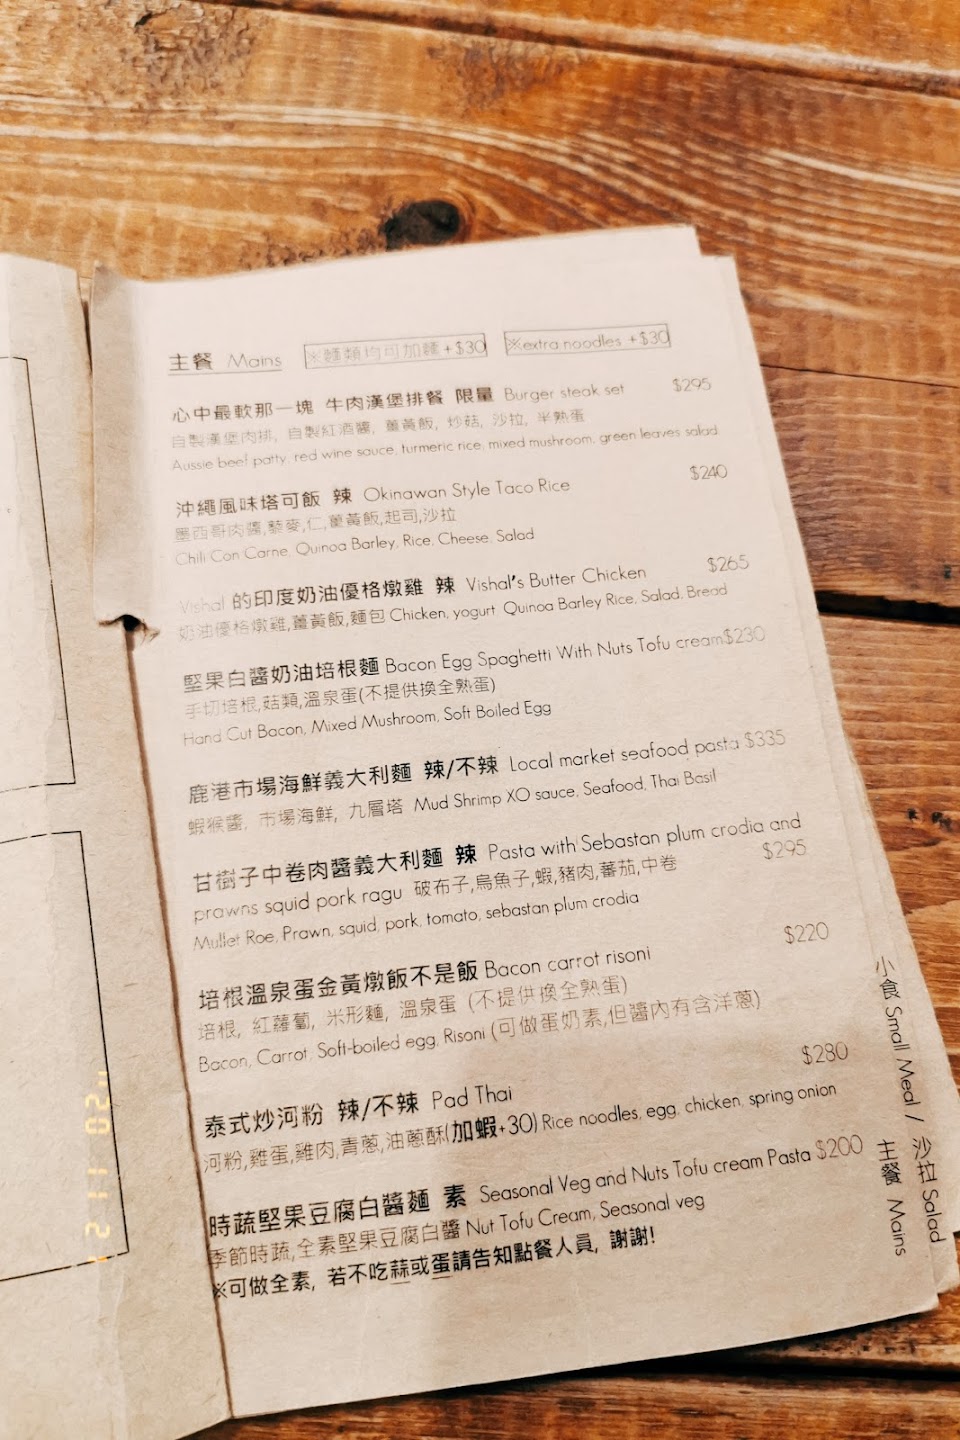 主餐 Mains ※麵類均可加麵+$30 ※extra noodles +$30
心中最軟那一塊 牛肉漢堡排餐 限量 Burger steak set $295
自製漢堡肉排, 自製紅酒醬, 薑黃飯, 炒菇, 沙拉, 半熟蛋
Aussie beef patty, red wine sauce, turmeric rice, mixed mushroom, green leaves salad
沖繩風味塔可飯 辣 Okinawan Style Taco Rice $240
墨西哥肉醬,藜麥,仁,薑黃飯,起司,沙拉
Chili Con Carne, Quinoa Barley, Rice, Cheese, Salad
Vishal 的印度奶油優格燉雞 辣 Vishal's Butter Chicken $265
奶油優格燉雞,薑黃飯,麵包 Chicken, yogurt, Quinoa Barley Rice, Salad, Bread
堅果白醬奶油培根麵 Bacon Egg Spaghetti With Nuts Tofu cream $230
手切培根,菇類,溫泉蛋(不提供換全熟蛋)
Hand Cut Bacon, Mixed Mushroom, Soft Boiled Egg
鹿港市場海鮮義大利麵 辣/不辣 Local market seafood pasta $335
蝦猴醬, 市場海鮮, 九層塔 Mud Shrimp XO sauce, Seafood, Thai Basil
甘樹子中卷肉醬義大利麵 辣 Pasta with Sebastan plum crodia and
prawns squid pork ragu 破布子,烏魚子,蝦,豬肉,蕃茄,中卷 $295
Mullet Roe, Prawn, squid, pork, tomato, sebastan plum crodia
培根溫泉蛋金黃燉飯不是飯 Bacon carrot risoni $220
培根, 紅蘿蔔, 米形麵, 溫泉蛋 (不提供換全熟蛋)
Bacon, Carrot, Soft-boiled egg, Risoni (可做蛋奶素,但醬內有含洋蔥)
泰式炒河粉 辣/不辣 Pad Thai $280
河粉,雞蛋,雞肉,青蔥,油蔥酥(加蝦+30) Rice noodles, egg, chicken, spring onion
時蔬堅果豆腐白醬麵 素 Seasonal Veg and Nuts Tofu cream Pasta $200
季節時蔬,全素堅果豆腐白醬 Nut Tofu Cream, Seasonal veg
※可做全素, 若不吃蒜或蛋請告知點餐人員, 謝謝!
小食 Small Meal / 沙拉 Salad
主餐 Mains